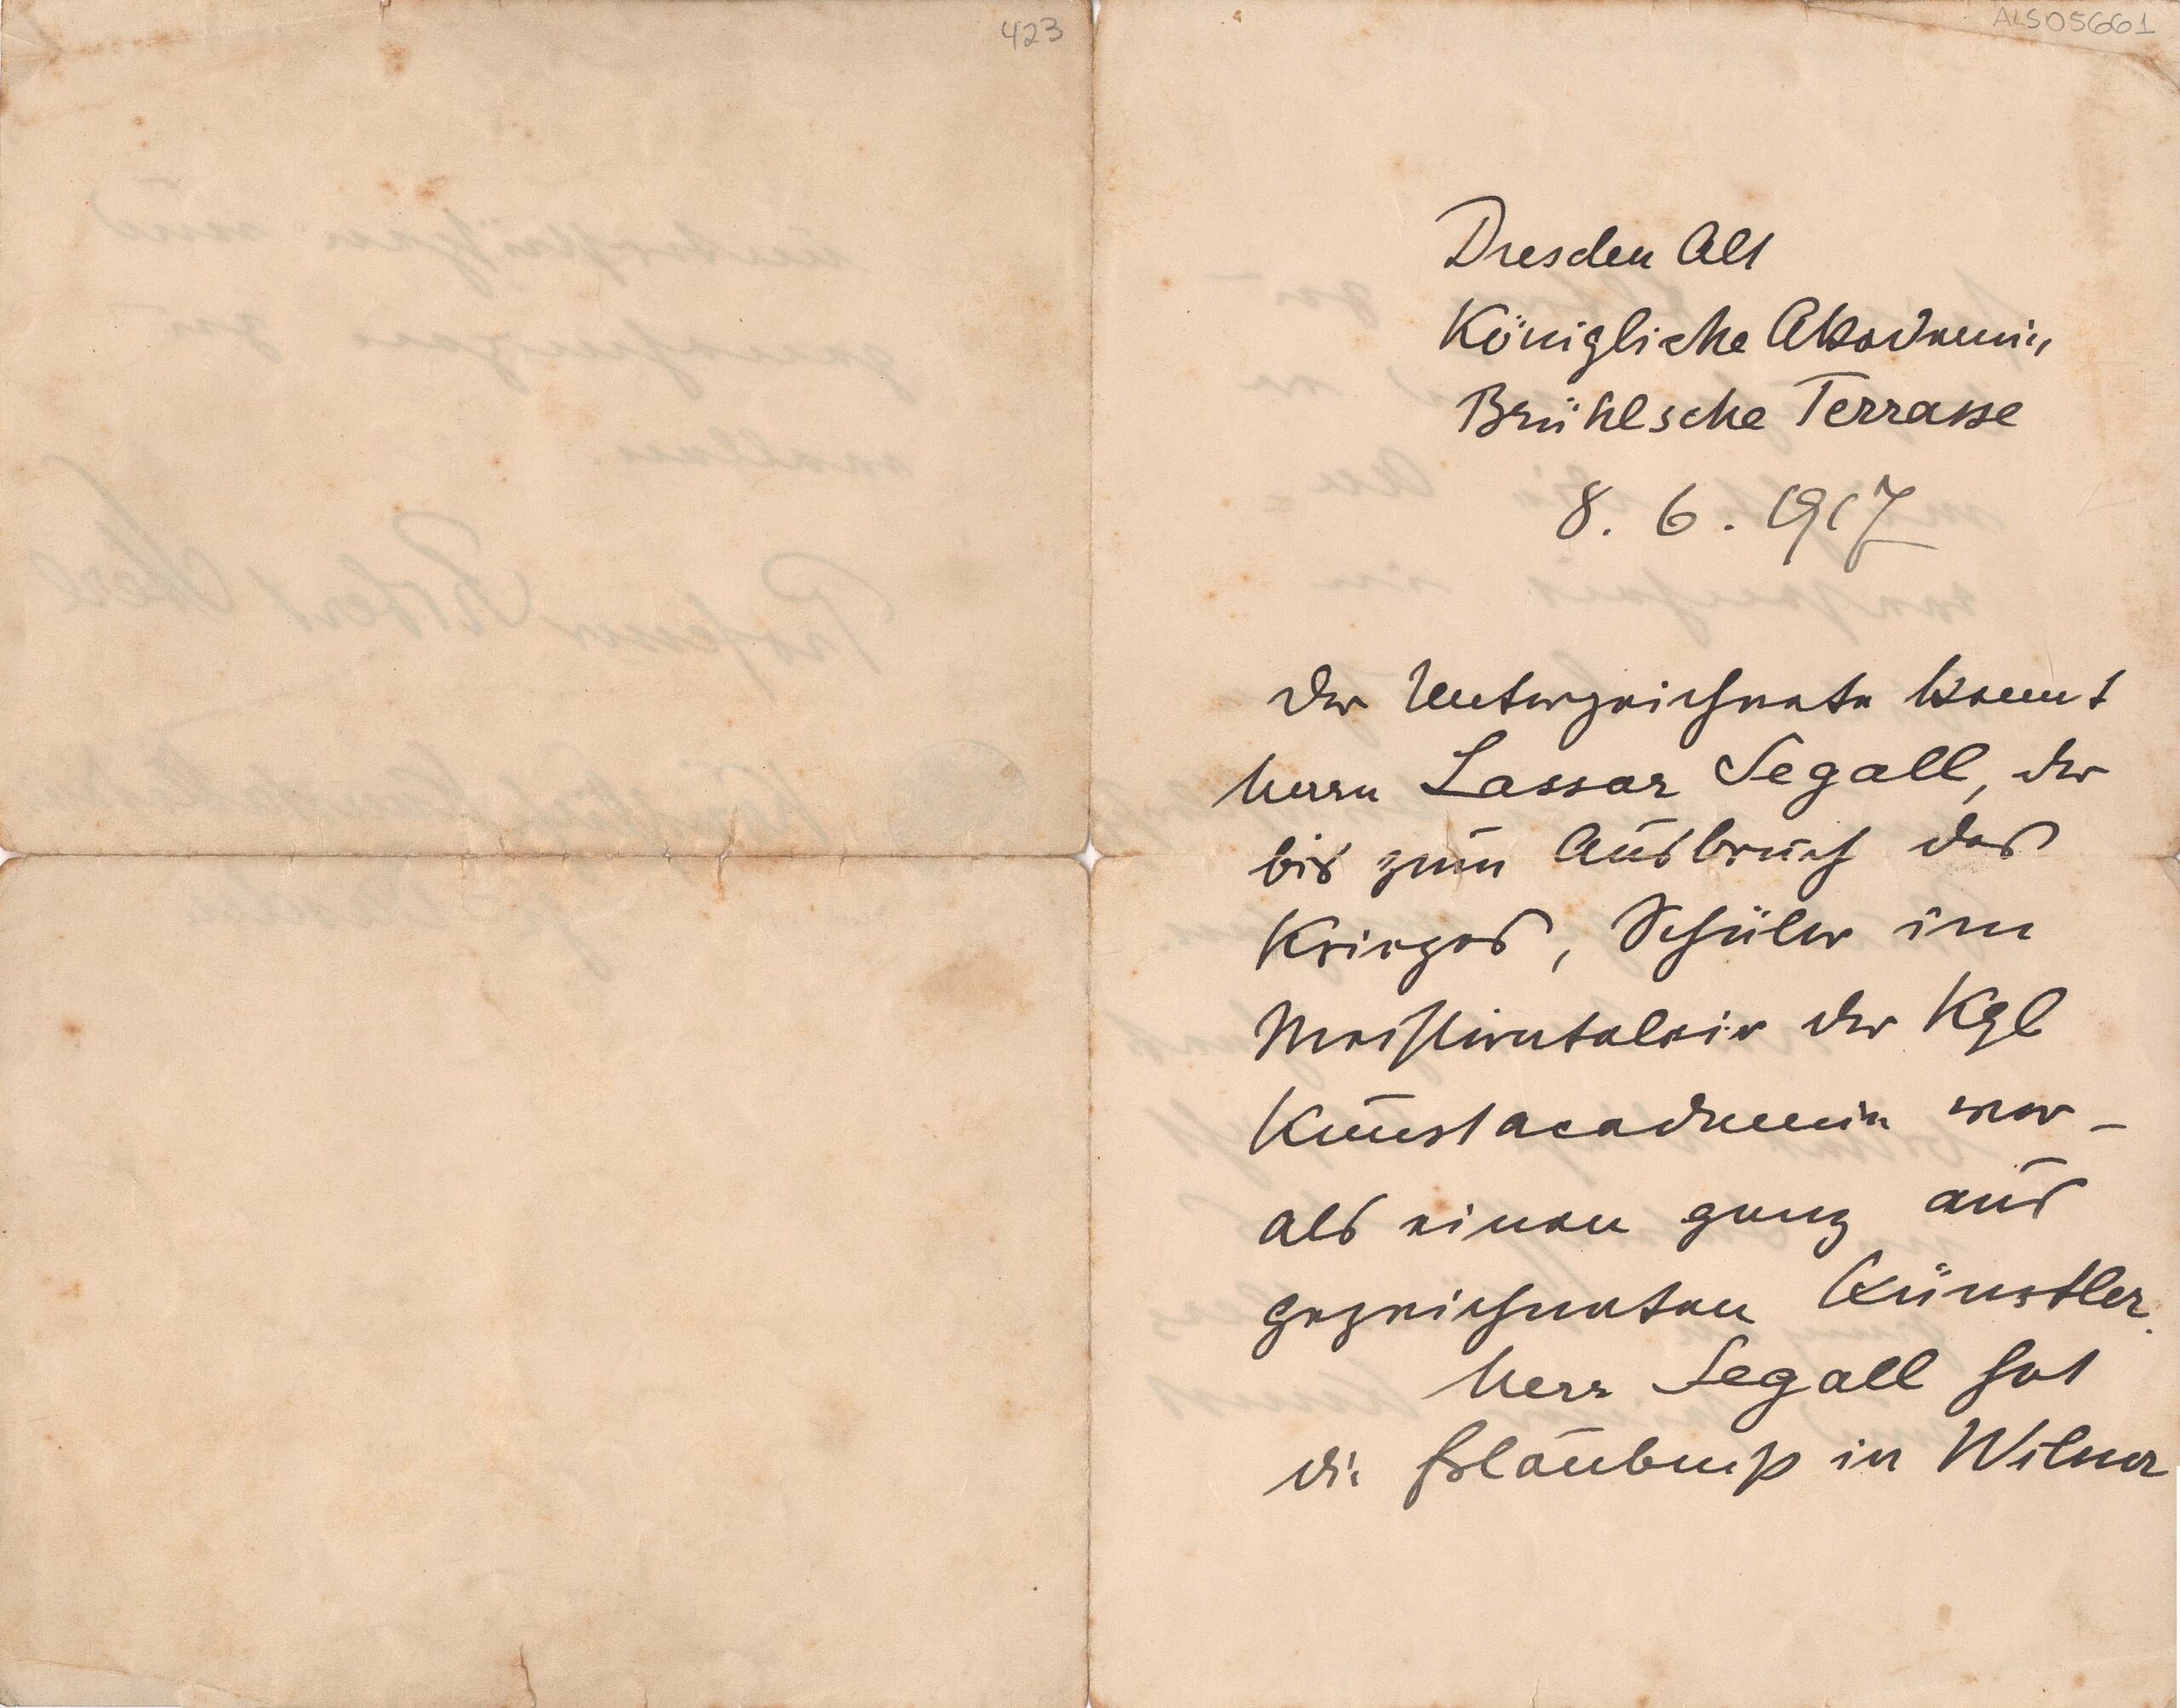 423
ALS05661
Dresden Alt
Königliche Akademie
Brühlsche Terrasse
8. 6. 1917
Der Unterzeichnete kennt
Herrn Lassar Segall, der
bis zum Ausbruch des
Krieges, Schüler im
Meisteratelier der Kgl
Kunstacademie war –
als einen ganz aus
gezeichneten Künstler.
Herr Segall hat
die Erlaubniß in Wilna